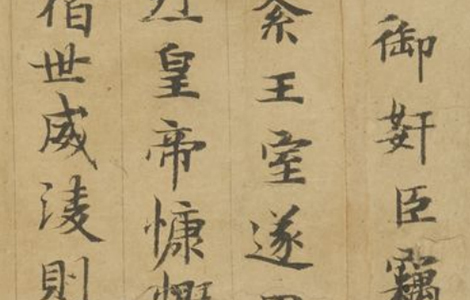 御奸臣竊
紊王室遂
皇帝慷慨
世威淩則